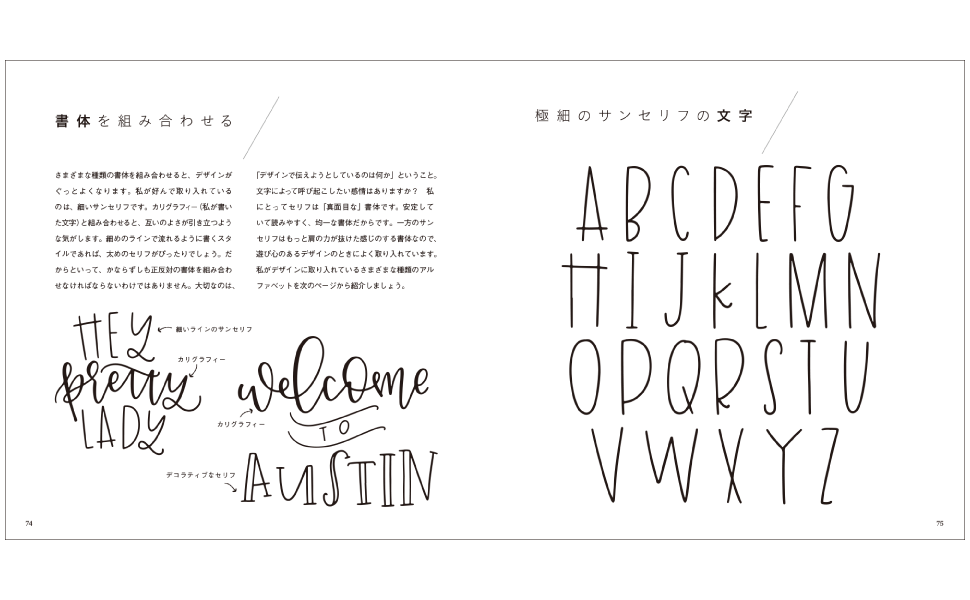 書体を組み合わせる
さまざまな種類の書体を組み合わせると、デザインが
ぐっとよくなります。私が好んで取り入れている
のは、細いサンセリフです。カリグラフィー（私が書い
た文字）と組み合わせると、互いのよさが引き立つよう
な気がします。細めのラインで流れるように書くスタ
イルであれば、太めのセリフがぴったりでしょう。だ
からといって、かならずしも正反対の書体を組み合わ
せなければならないわけではありません。大切なのは、
「デザインで伝えようとしているのは何か」ということ。
文字によって呼び起こしたい感情はありますか？ 私
にとってセリフは「真面目な」書体です。安定して
いて読みやすく、均一な書体だからです。一方のサン
セリフはもっと肩の力が抜けた感じのする書体なので、
遊び心のあるデザインのときによく取り入れています。
私がデザインに取り入れているさまざまな種類のアル
ファベットを次のページから紹介しましょう。
HEY
細いラインのサンセリフ
pretty
カリグラフィー
LADY
welcome
カリグラフィー
TO
デコラティブなセリフ
AUSTIN
74
極細のサンセリフの文字
A B C D E F G
H I J K L M N
O P Q R S T U
V W X Y Z
75